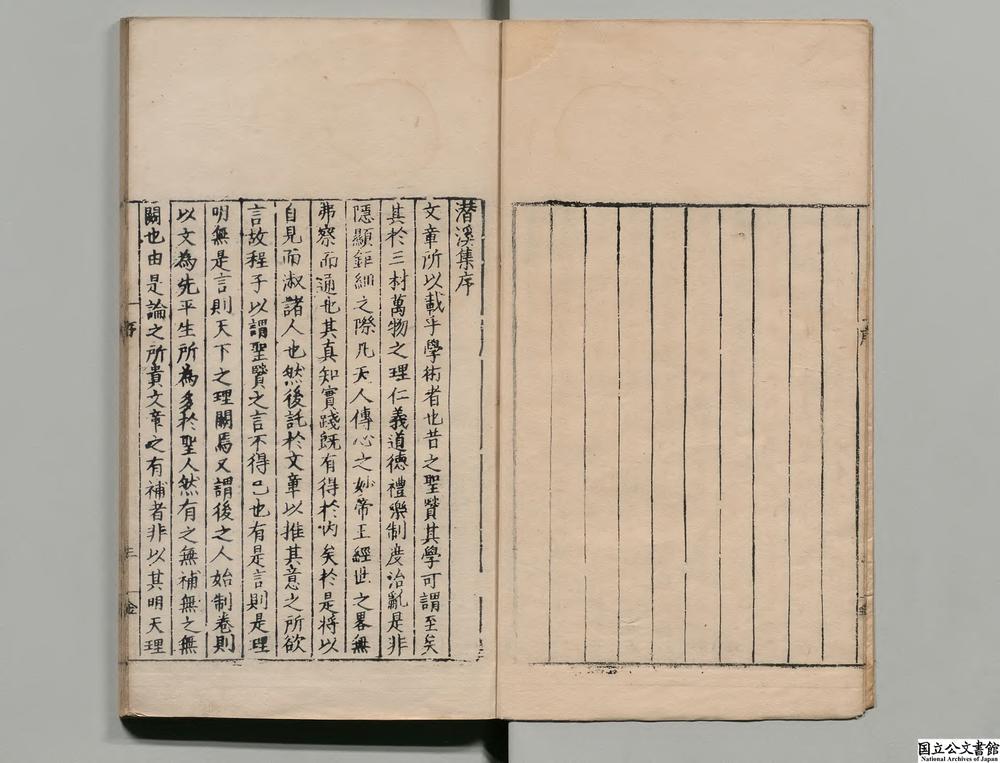 潛溪集序
文章所以載乎學術者也昔之聖賢其學可謂至矣
其於三材萬物之理仁義道德禮樂制度治亂是非
隱顯鉅細之際凡天人傳心之妙帝王經世之畧無
弗察而通也其真知實踐既有得於内矣於是將以
自見而淑諸人也然後託於文章以推其意之所欲
言故程子以謂聖賢之言不得已也有是言則是理
明無是言則天下之理闕焉又謂後之人始制卷則
以文為先平生所為多於聖人然有之無補無之無
闕也由是論之所貴文章之有補者非以其明天理
序
三
国立公文書館
National Archives of Japan